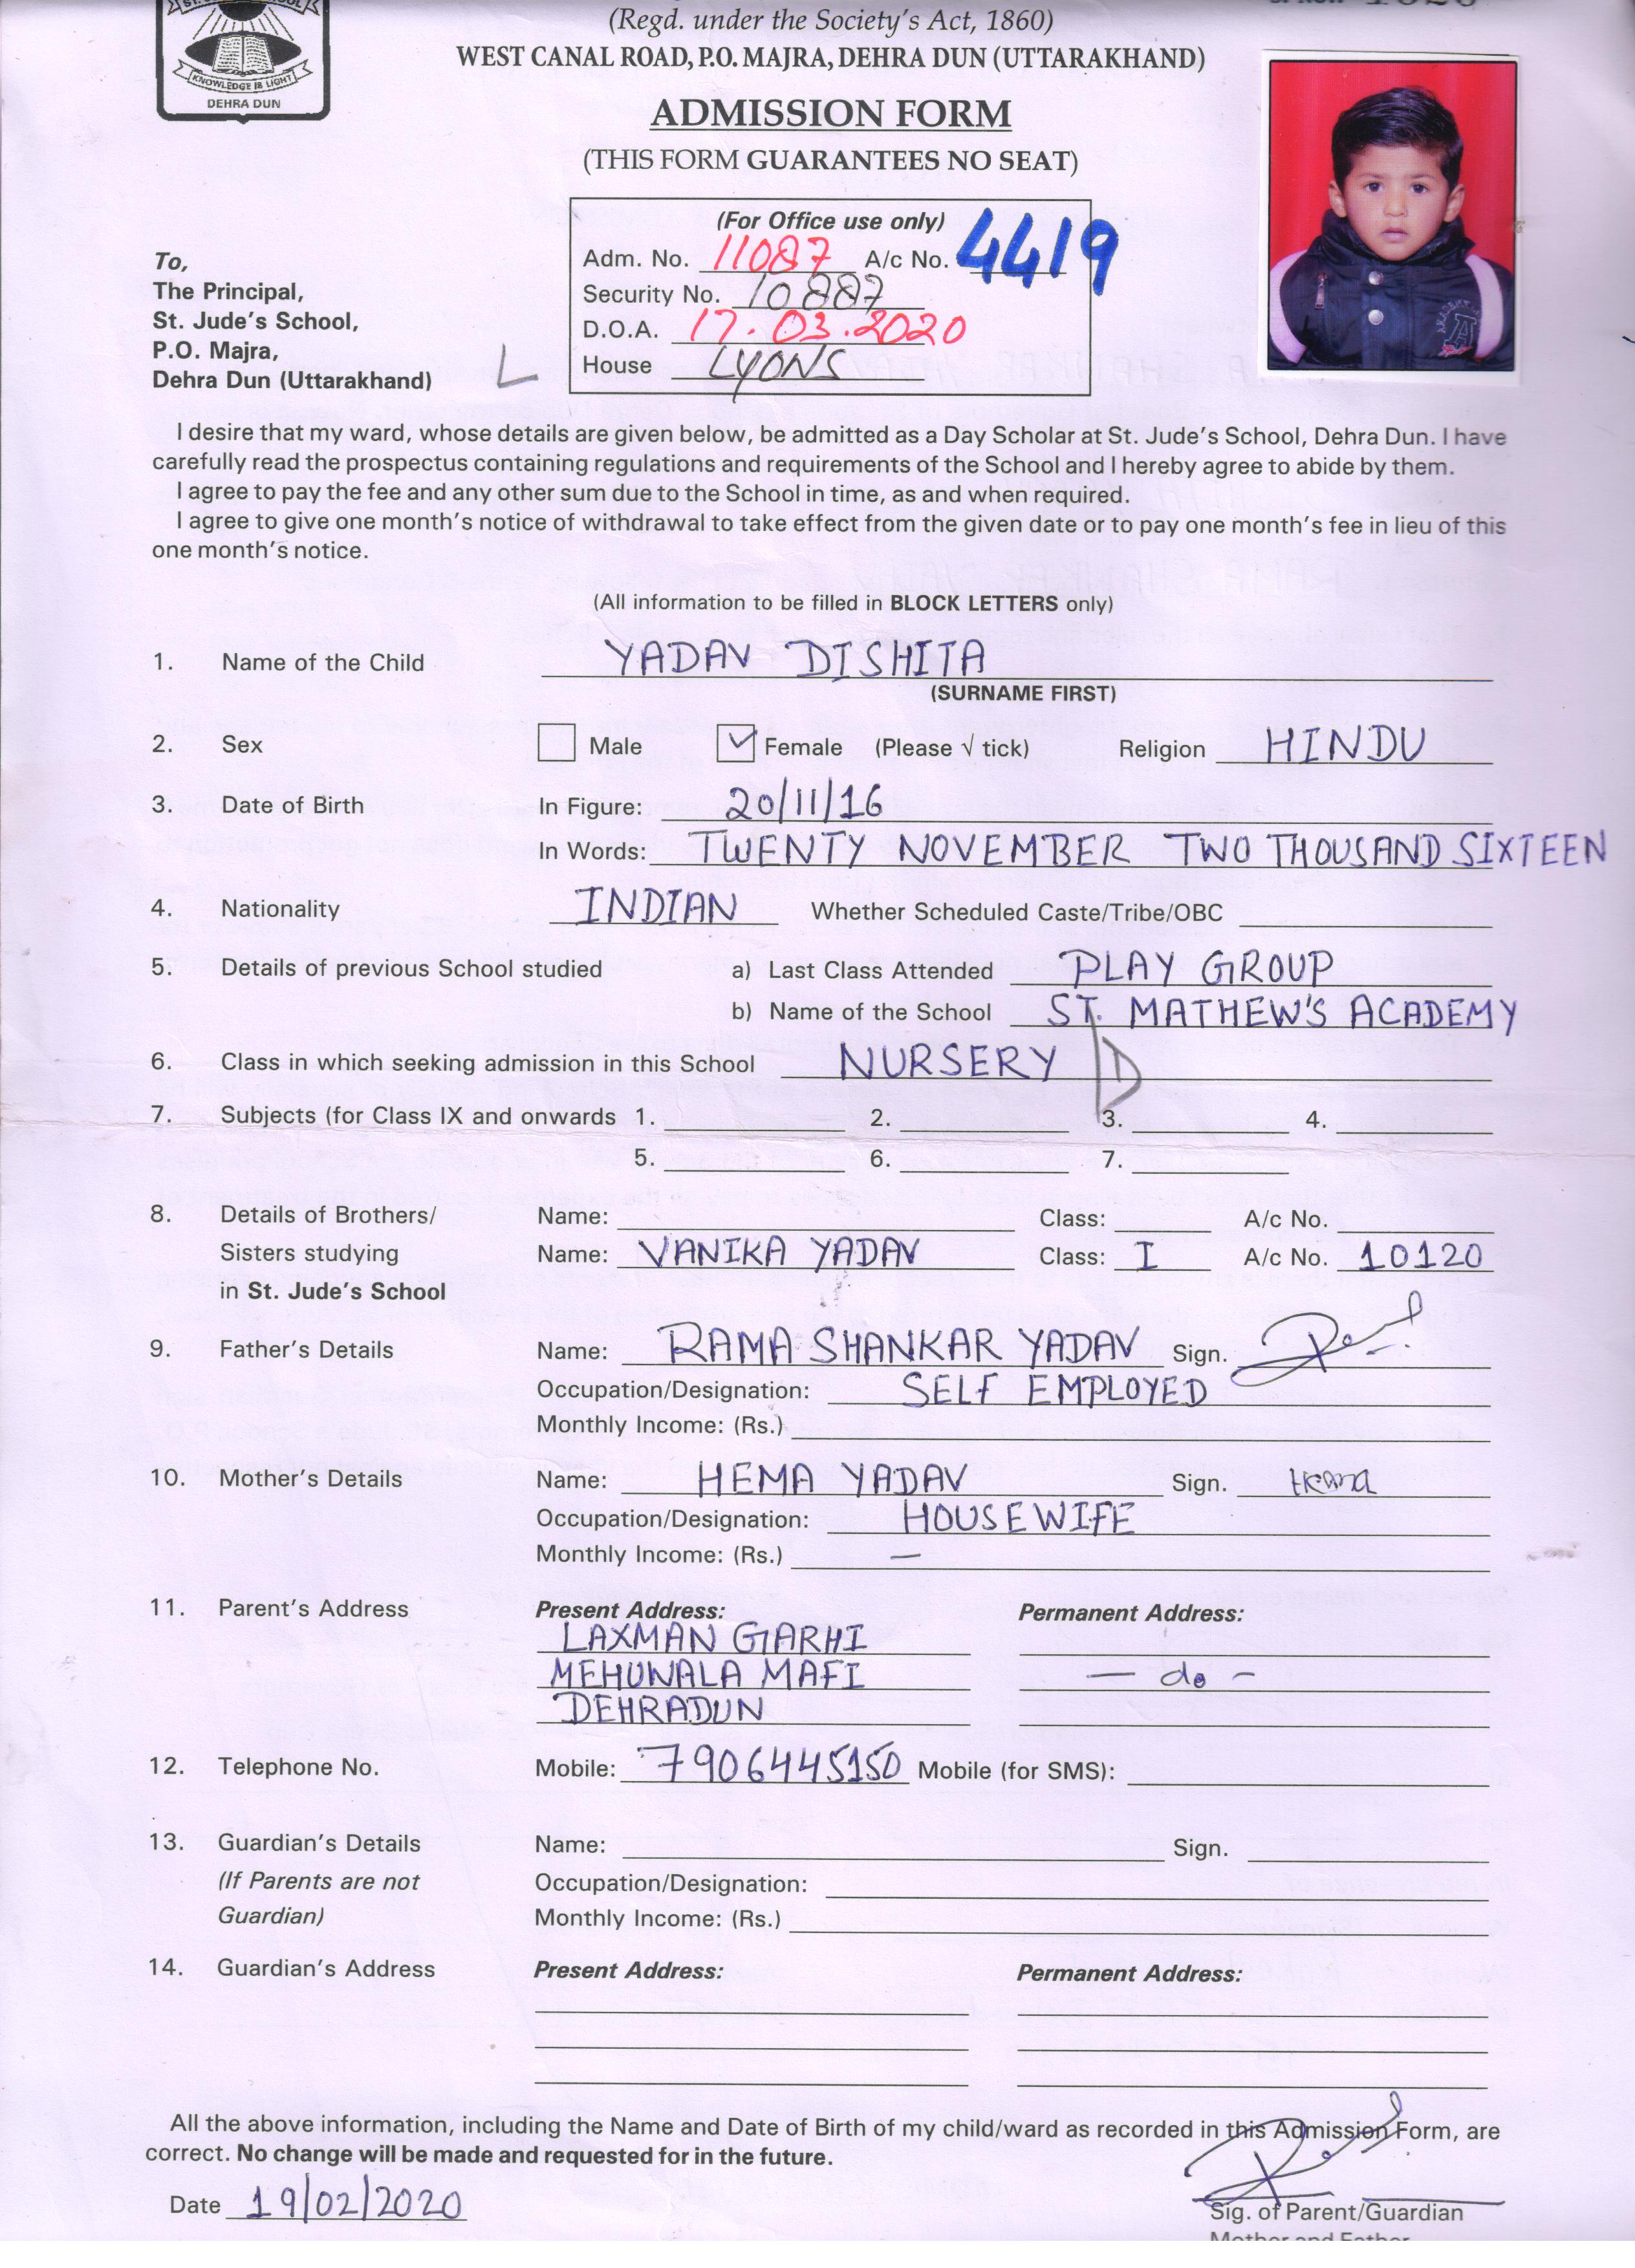 (Regd. under the Society's Act, 1860)
WEST CANAL ROAD, P.O. MAJRA, DEHRA DUN (UTTARAKHAND)
KNOWLEDGE IS LIGHT
DEHRA DUN
ADMISSION FORM
(THIS FORM GUARANTEES NO SEAT)
(For Office use only)
Adm. No. 11087 A/c No. 4419
Security No. 10887
D.O.A. 17.03.2020
House LYONS
To,
The Principal,
St. Jude's School,
P.O. Majra,
Dehra Dun (Uttarakhand) L
I desire that my ward, whose details are given below, be admitted as a Day Scholar at St. Jude's School, Dehra Dun. I have
carefully read the prospectus containing regulations and requirements of the School and I hereby agree to abide by them.
I agree to pay the fee and any other sum due to the School in time, as and when required.
I agree to give one month's notice of withdrawal to take effect from the given date or to pay one month's fee in lieu of this
one month's notice.
(All information to be filled in BLOCK LETTERS only)
1. Name of the Child YADAV DISHITA
(SURNAME FIRST)
2. Sex Male ✓ Female (Please √ tick) Religion HINDU
3. Date of Birth In Figure: 20/11/16
In Words: TWENTY NOVEMBER TWO THOUSAND SIXTEEN
4. Nationality INDIAN Whether Scheduled Caste/Tribe/OBC
5. Details of previous School studied a) Last Class Attended PLAY GROUP
b) Name of the School ST. MATHEW'S ACADEMY
6. Class in which seeking admission in this School NURSERY D
7. Subjects (for Class IX and onwards 1. 2. 3. 4.
5. 6. 7.
8. Details of Brothers/ Name: Class: A/c No.
Sisters studying Name: VANIKA YADAV Class: I A/c No. 10120
in St. Jude's School
9. Father's Details Name: RAMA SHANKAR YADAV Sign.
Occupation/Designation: SELF EMPLOYED
Monthly Income: (Rs.)
10. Mother's Details Name: HEMA YADAV Sign. Hema
Occupation/Designation: HOUSEWIFE
Monthly Income: (Rs.) —
11. Parent's Address Present Address: Permanent Address:
LAXMAN GARHI
MEHUWALA MAFI — do -
DEHRADUN
12. Telephone No. Mobile: 7906445150 Mobile (for SMS):
13. Guardian's Details Name: Sign.
(If Parents are not Occupation/Designation:
Guardian) Monthly Income: (Rs.)
14. Guardian's Address Present Address: Permanent Address:
All the above information, including the Name and Date of Birth of my child/ward as recorded in this Admission Form, are
correct. No change will be made and requested for in the future.
Date 19/02/2020
Sig. of Parent/Guardian
Mother and Father